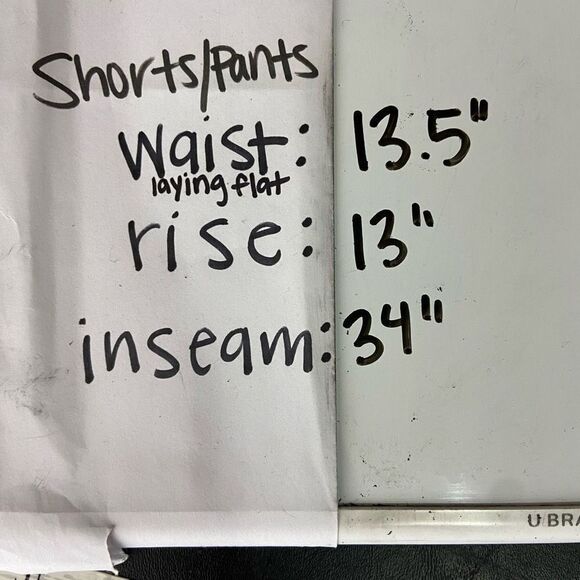 Shorts/Pants
Waist: 13.5"
laying flat
rise: 13"
inseam: 34"
U BRA